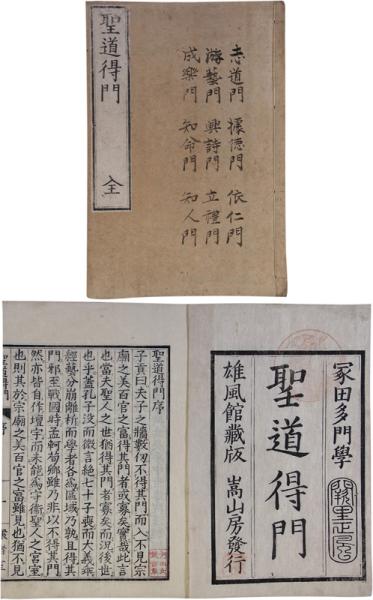 聖道得門 全
志道門 據德門 依仁門
游藝門 興詩門 立禮門
成樂門 知命門 知人門
冢田多門學
聖道得門
雄風館藏版 嵩山房發行
聖道得門序
子貢曰夫子之牆數仞不得其門而入不見宗
廟之美百官之富得其門者或寡矣賢哉此言
也當夫聖人之世猶得其門者寡矣而況後世
也乎蓋孔子沒而微言絕七十子喪而大義乖
經藝分崩離析而學者各為區域乃孰且得其
門邪至戰國時孟軻荀卿雖乃非以不得其門
然亦皆自作壇宇而未能為守衛聖人之宮室
也則其於宗廟之美百官之富雖見也猶不見
聖道得門 序 一